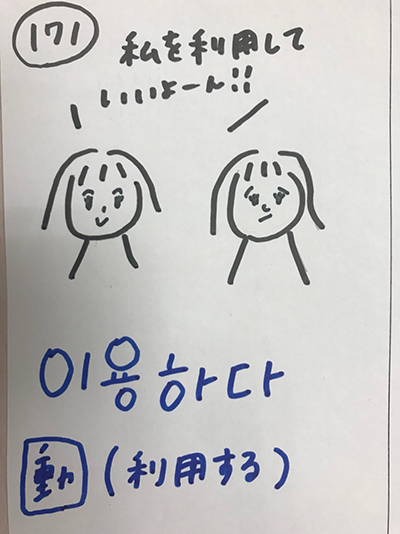 171
私を利用して
いいよーん!!
이용하다
動 (利用する)